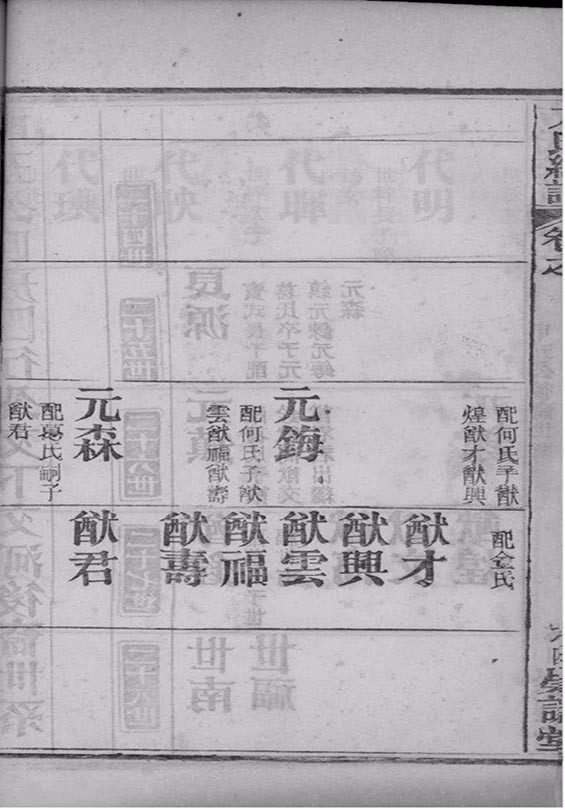 氏統譜
卷之
配何氏子猷
煌猷才猷興
元鋂
配何氏子猷
雲猷福猷壽
元森
配葛氏嗣子
猷君
配金氏
猷才
猷興
猷雲
猷福
猷壽
猷君